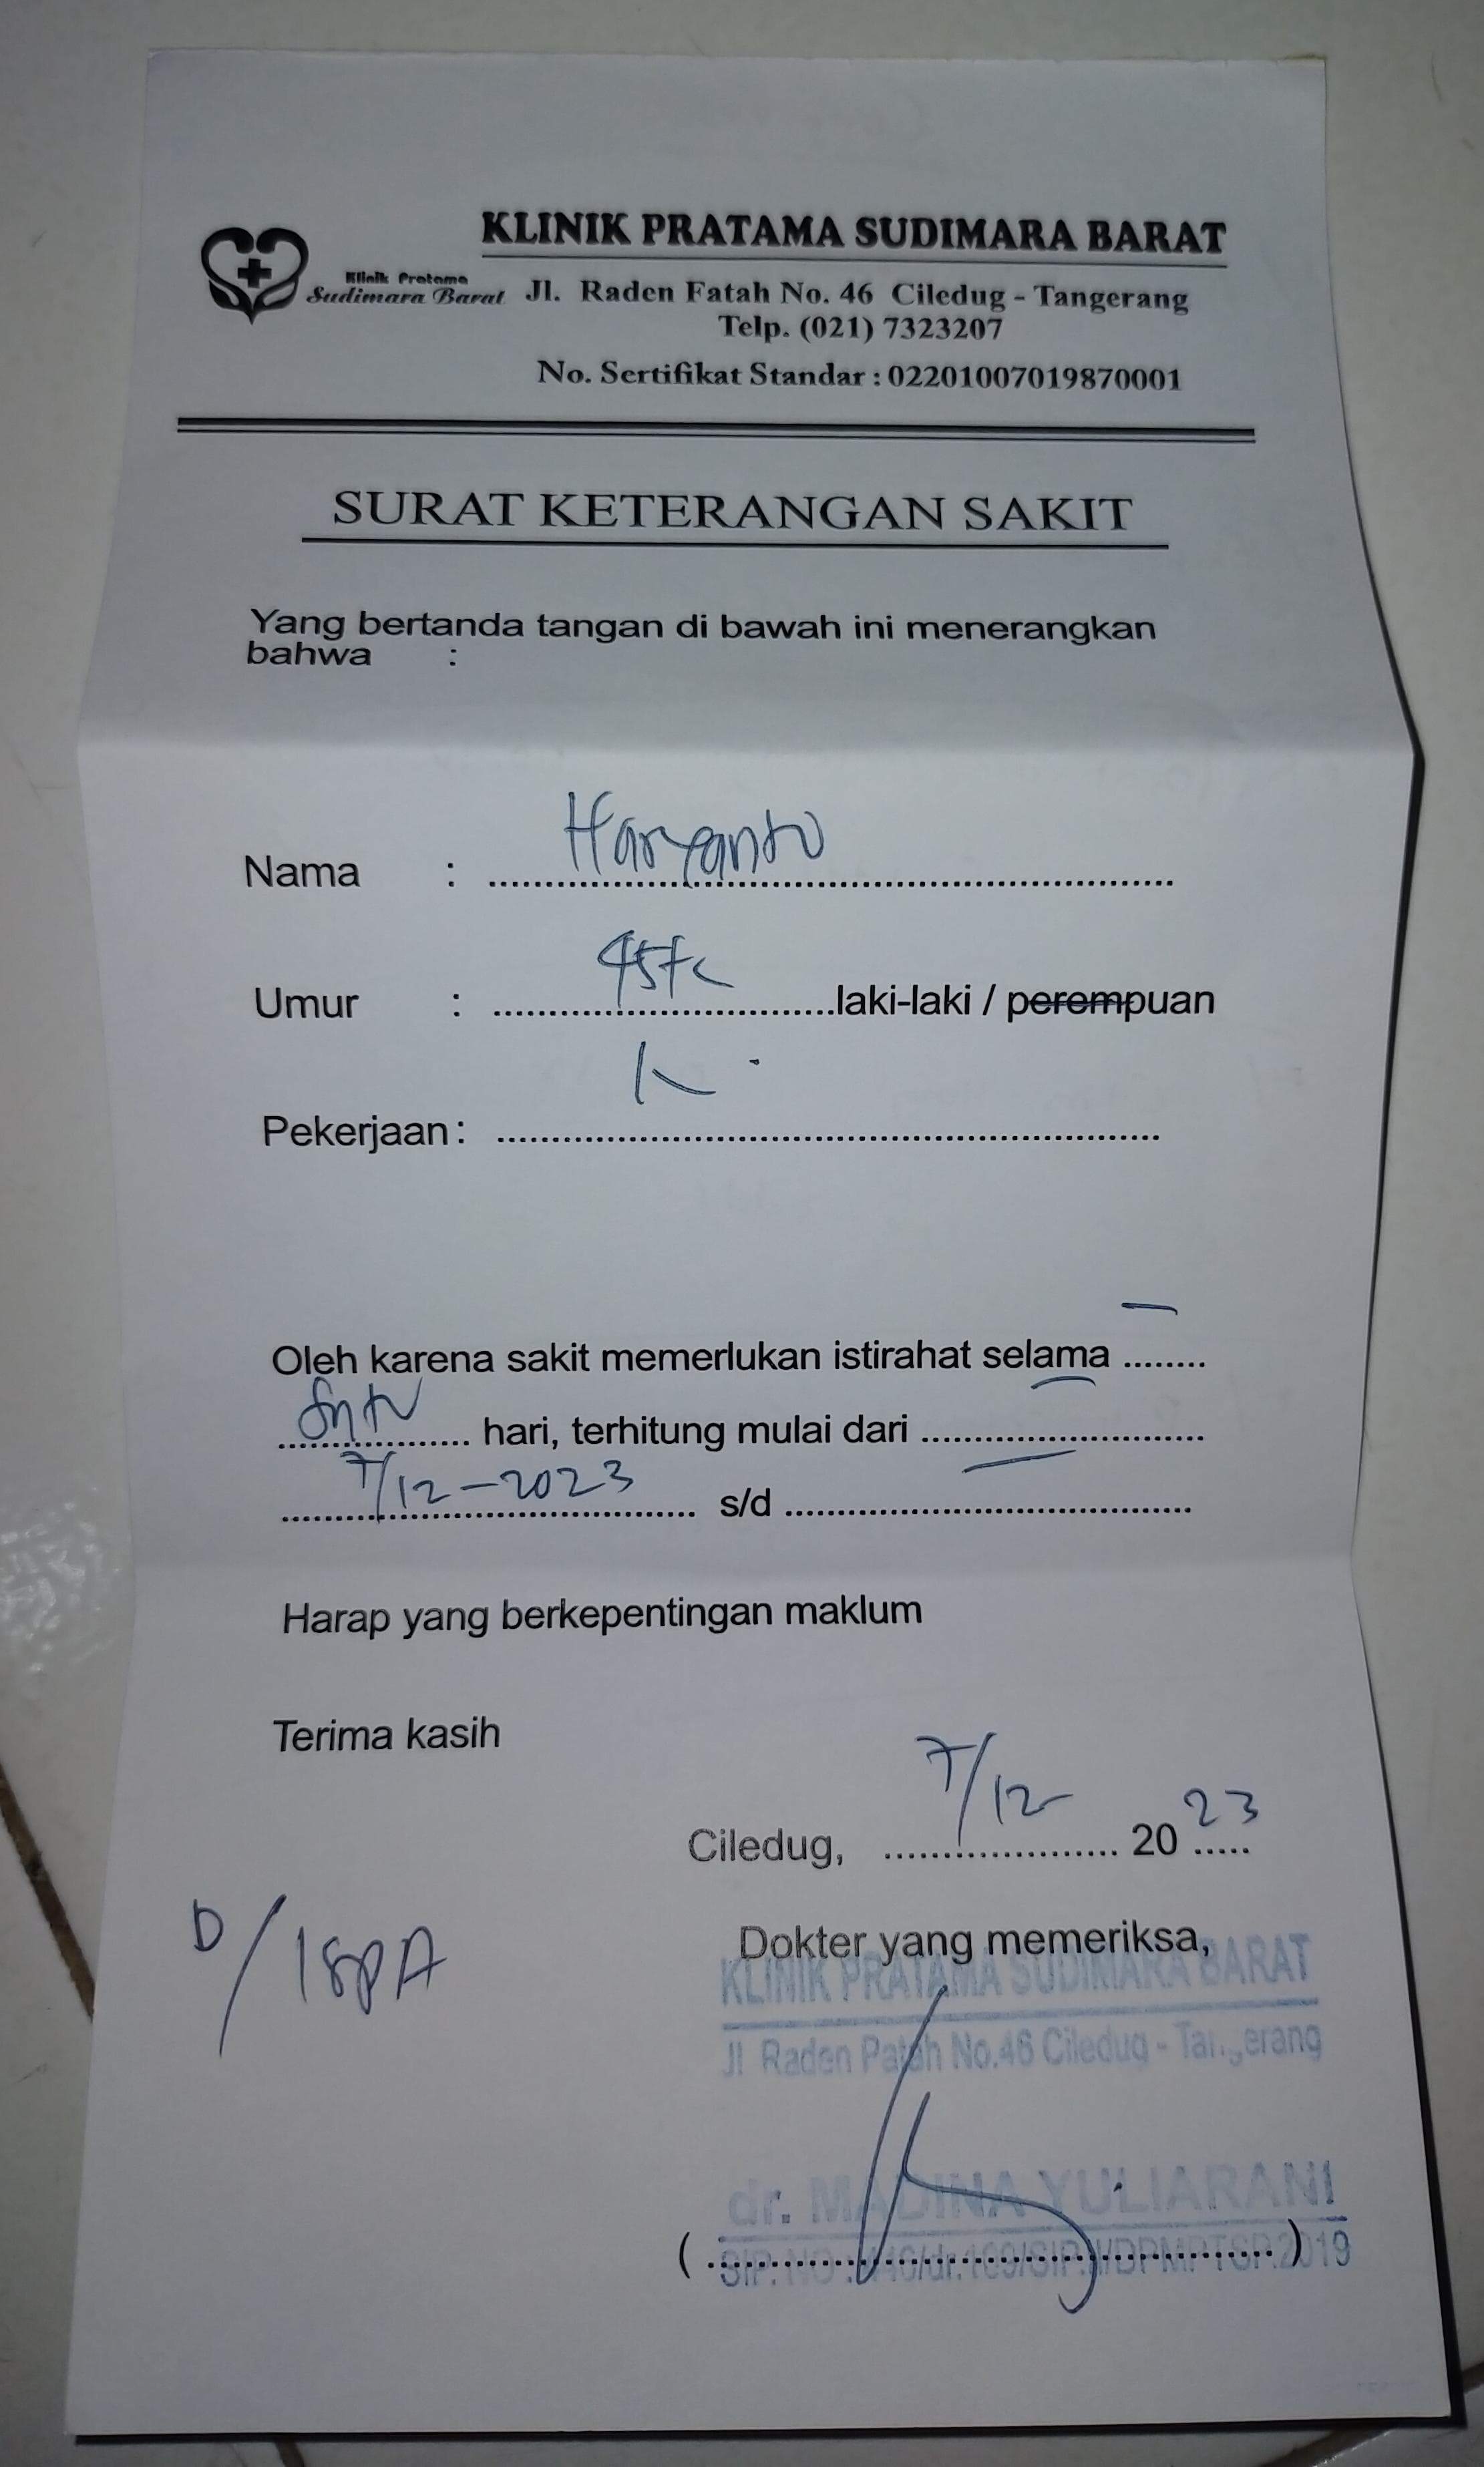 KLINIK PRATAMA SUDIMARA BARAT
Klinik Pratama
Sudimara Barat
Jl. Raden Fatah No. 46 Ciledug - Tangerang
Telp. (021) 7323207
No. Sertifikat Standar : 02201007019870001
SURAT KETERANGAN SAKIT
Yang bertanda tangan di bawah ini menerangkan
bahwa :
Nama : Haryanto
Umur : 45 laki-laki / perempuan
Pekerjaan : K
Oleh karena sakit memerlukan istirahat selama ........ –
Satu hari, terhitung mulai dari .......... –
7/12-2023 s/d .......... –
Harap yang berkepentingan maklum
Terima kasih
Ciledug, 7/12 2023
D/ISPA
Dokter yang memeriksa,
KLINIK PRATAMA SUDIMARA BARAT
Jl Raden Patah No.46 Ciledug - Tangerang
dr. MADINA YULIARANI
(..........)